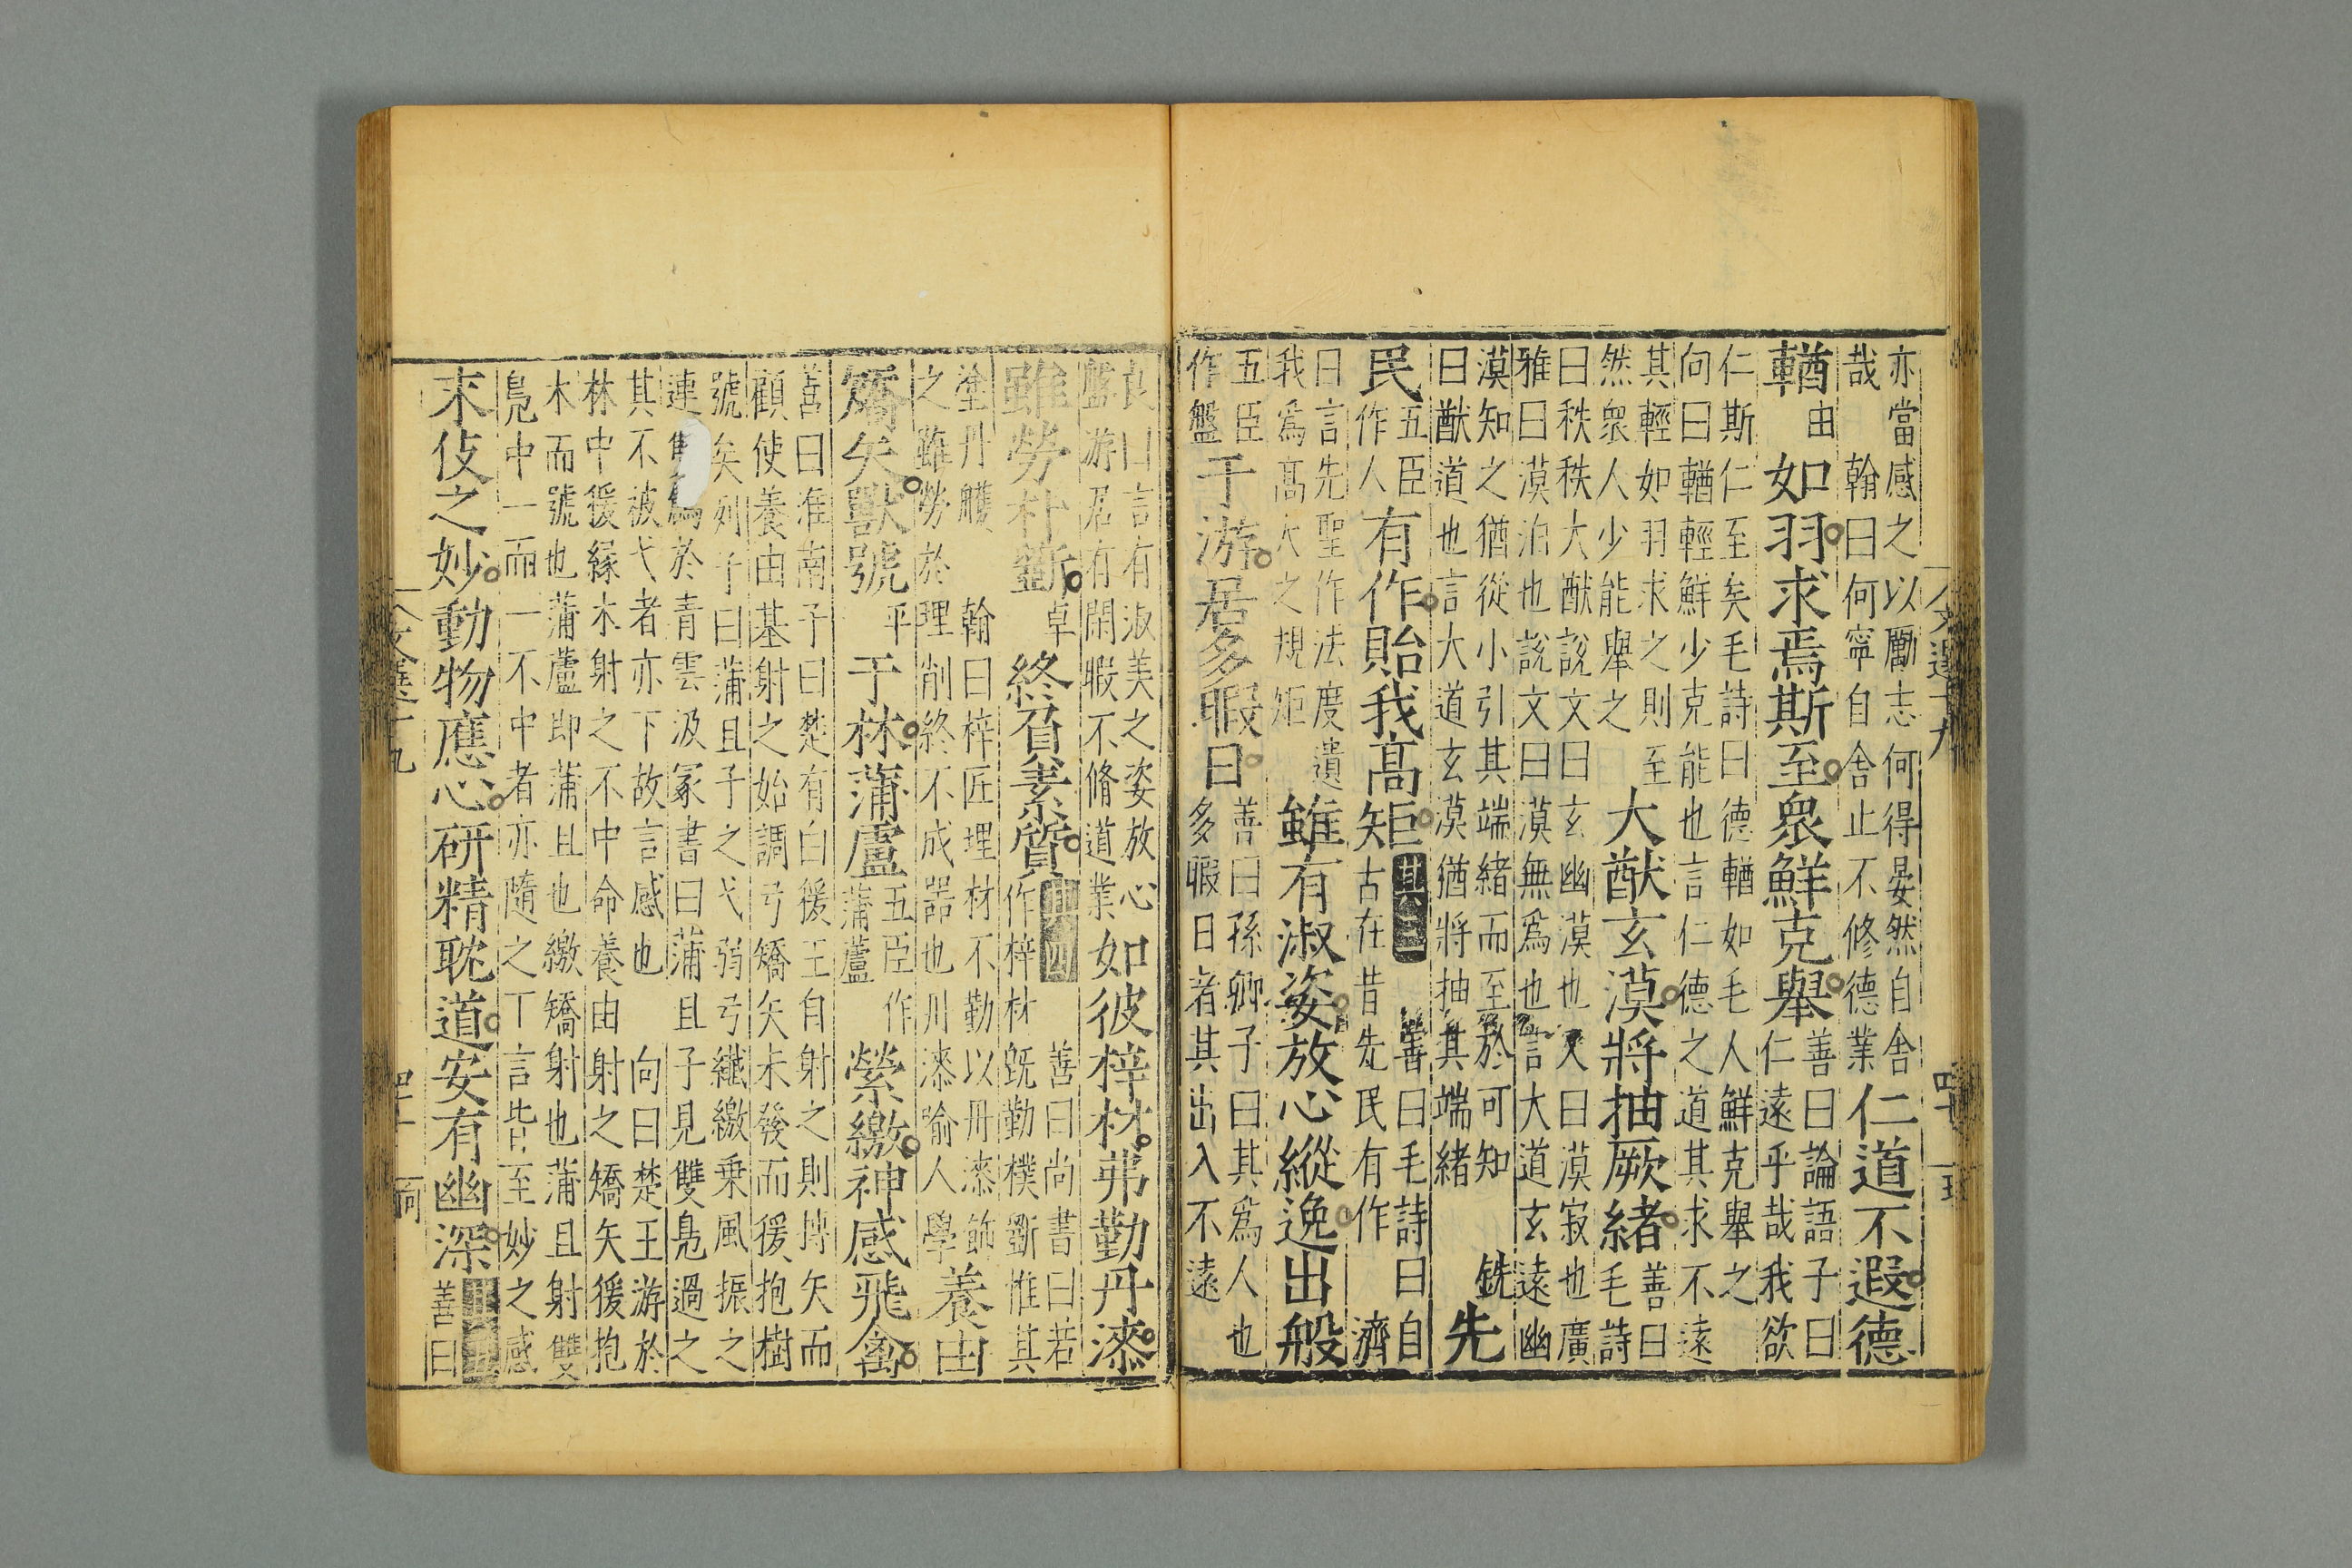 亦當感之以勵志何得晏然自舍
哉翰曰何寧自舍止不修德業
仁道不遐德
輶
由
如羽求焉斯至衆鮮克舉
善曰論語子曰
仁遠乎哉我欲
仁斯仁至矣毛詩曰德輶如毛人鮮克舉之
向曰輶輕鮮少克能也言仁德之道其求不遠
其輕如羽求之則至
然衆人少能舉之
大猷玄漠將抽厥緒
善曰
毛詩
曰秩秩大猷說文曰玄幽漠也又曰漠寂也廣
雅曰漠泊也說文曰漠無爲也言大道玄遠幽
漠知之猶從小引其端緒而至於可知
曰猷道也言大道玄漠猶將抽其端緒
銑
先
民
五臣
作人
有作貽我髙矩
其三
善曰毛詩曰自
古在昔先民有作
濟
曰言先聖作法度遺
我爲髙大之規矩
雖有淑姿放心縱逸出般
五臣
作盤
于游居多暇日
善曰孫卿子曰其爲人也
多暇日者其出入不遠
良曰言有淑美之姿放心
盤游居有閑暇不脩道業
如彼梓材弗勤丹漆
雖勞朴斲
卓
終負素質
其四
作梓材旣勤樸斲惟其
善曰尚書曰若
塗丹雘
翰曰梓匠理材不勤以丹漆飾
之雖勞於理削終不成器也丹漆喻人學
養由
矯矢獸號
平
于林蒲盧
五臣作
蒲蘆
縈繳神感飛禽
善曰淮南子曰楚有白猨王自射之則搏矢而
顧使養由基射之始調弓矯矢未發而猨抱樹
號矣列子曰蒲且子之弋弱弓纖繳乗風振之
連雙
於青雲汲冢書曰蒲且子見雙鳧過之
其不被弋者亦下故言感也
向曰楚王游於
林中猨緣木射之不中命養由射之矯矢猨抱
木而號也蒲蘆即蒲且也繳矯射也蒲且射雙
鳧中一而一不中者亦隨之下言皆至妙之感
末伎之妙動物應心研精耽道安有幽深
善曰
文選十九
四十